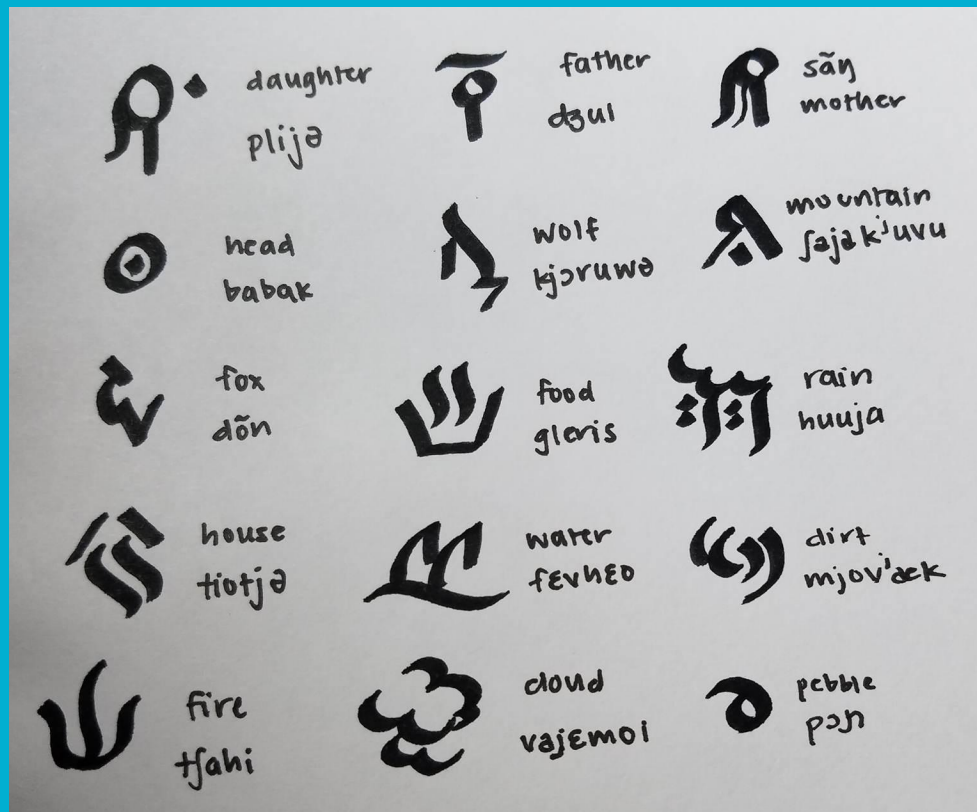 daughter
plijə
father
dʒul
sãŋ
mother
head
babak
wolf
kjɔruwə
mountain
ʃəjəkʲuvu
fox
dõn
food
gleris
rain
huuja
house
tiotjə
water
fɛvhɛo
dirt
mjov'æk
fire
tʃahi
cloud
vajɛmoi
pebble
pɔɲ